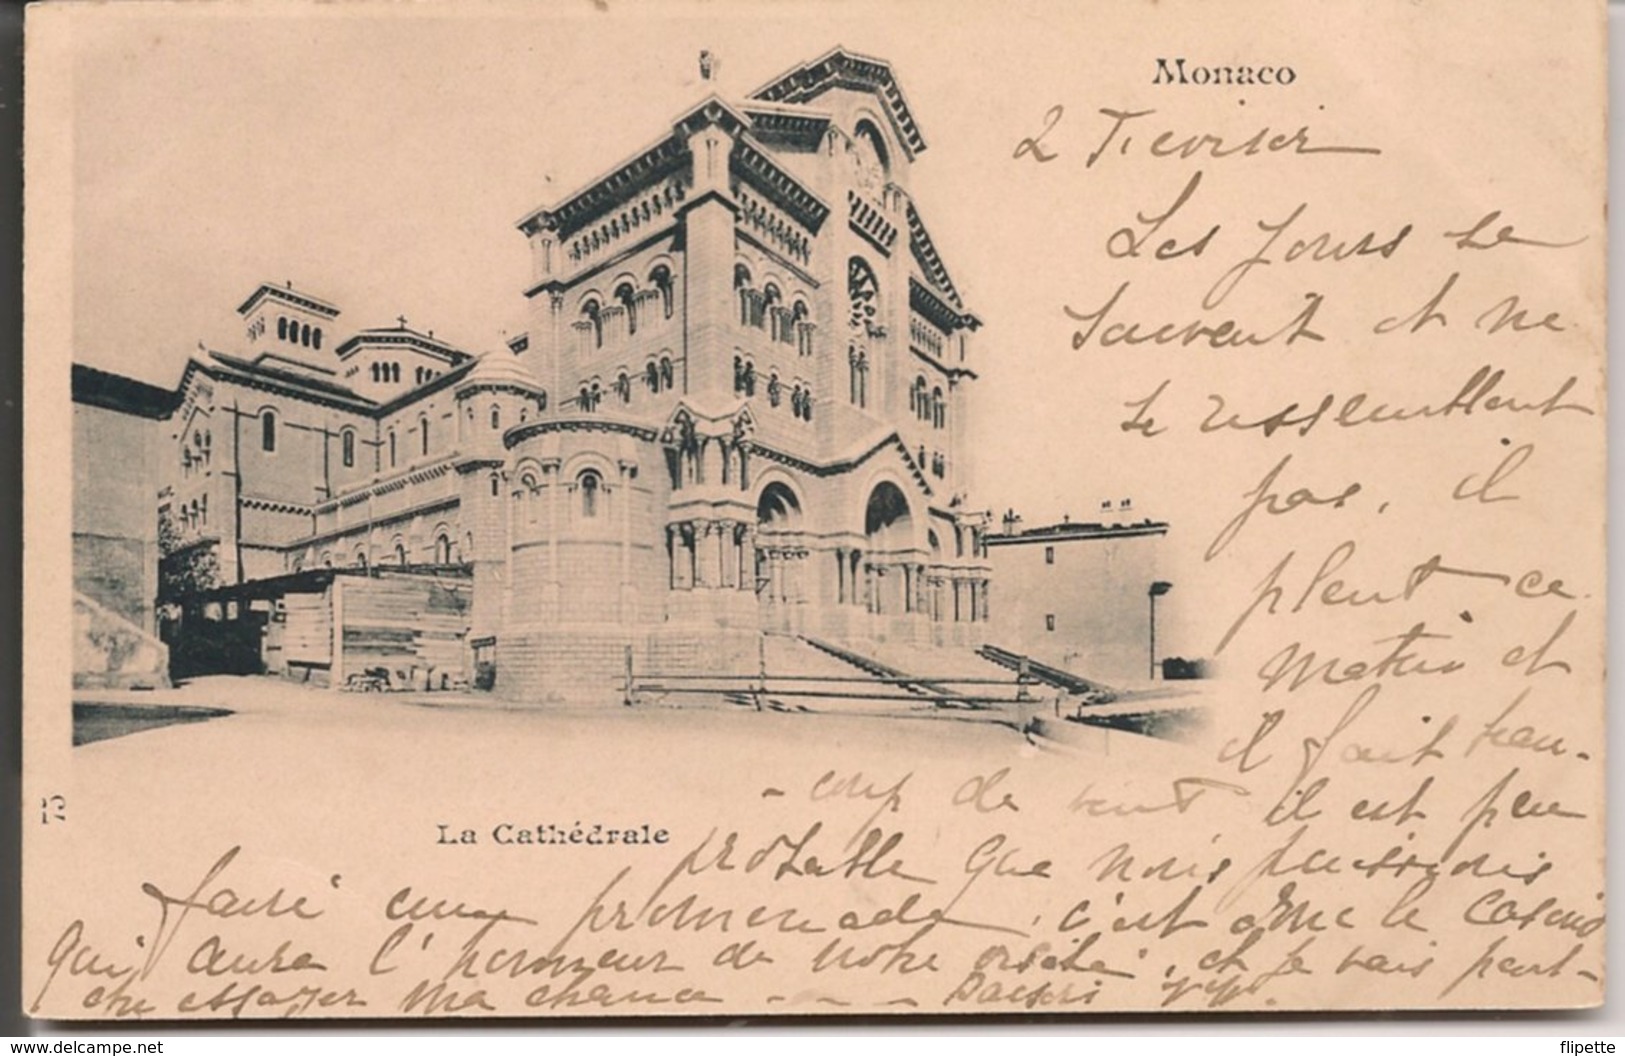 Monaco
2 Fevrier
Les jours se
suivent et ne
se ressemblent
pas, il
pleut ce
matin et
il fait beau-
-coup de vent il est peu
La Cathédrale
probable que nous puissions
faire une promenade, c'est donc le Casino
qui aura l'honneur de notre visite, et je vais peut-
etre essayer ma chance - - - Baisers
12
www.delcampe.net
flipette